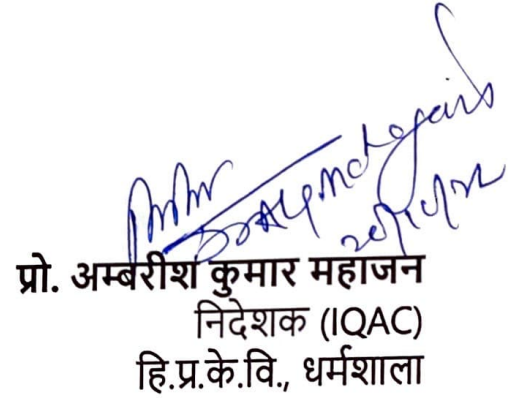 प्रो. अम्बरीश कुमार महाजन
निदेशक (IQAC)
हि.प्र.के.वि., धर्मशाला